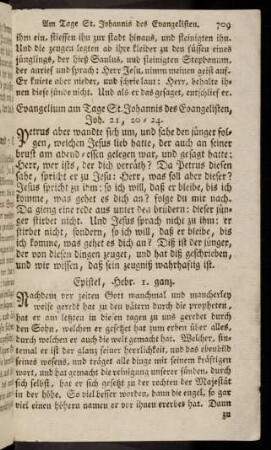 Am Tage St. Johannis des Evangelisten. 709
ihm ein, stiessen ihn zur stadt hinaus, und steinigten ihn.
Und die zeugen legten ab ihre kleider zu den füssen eines
jünglings, der hieß Saulus, und steinigten Stephanum,
der anrief und sprach: Herr Jesu, nimm meinen geist auf.
Er kniete aber nieder, und schrie laut: Herr, behalte ih-
nen diese sünde nicht. Und als er das gesaget, entschlief er.
Evangelium am Tage St. Johannis des Evangelisten,
Joh. 21, 20-24.
Petrus aber wandte sich um, und sahe den jünger fol-
gen, welchen Jesus lieb hatte, der auch an seiner
brust am abend-essen gelegen war, und gesagt hatte:
Herr, wer ists, der dich verräth? Da Petrus diesen
sahe, spricht er zu Jesu: Herr, was soll aber dieser?
Jesus spricht zu ihm: so ich will, daß er bleibe, bis ich
komme, was gehet es dich an? folge du mir nach.
Da gieng eine rede aus unter den brüdern: dieser jün-
ger stirbet nicht. Und Jesus sprach nicht zu ihm: er
stirbet nicht, sondern, so ich will, daß er bleibe, bis
ich komme, was gehet es dich an? Diß ist der jünger,
der von diesen dingen zeuget, und hat diß geschrieben,
und wir wissen, daß sein zeugniß wahrhaftig ist.
Epistel, Hebr. 1. ganz.
Nachdem vor zeiten Gott manchmal und mancherley
weise geredt hat zu den vätern durch die propheten,
hat er am letzten in diesen tagen zu uns geredet durch
den Sohn, welchen er gesetzt hat zum erben über alles,
durch welchen er auch die welt gemacht hat. Welcher, sin-
temal er ist der glanz seiner herrlichkeit, und das ebenbild
seines wesens, und träget alle dinge mit seinem kräftigen
wort, und hat gemacht die reinigung unserer sünden, durch
sich selbst, hat er sich gesetzt zu der rechten der Majestät
in der höhe. So viel besser worden, dann die engel, so gar
viel einen höhern namen er vor ihnen ererbet hat. Dann
zu